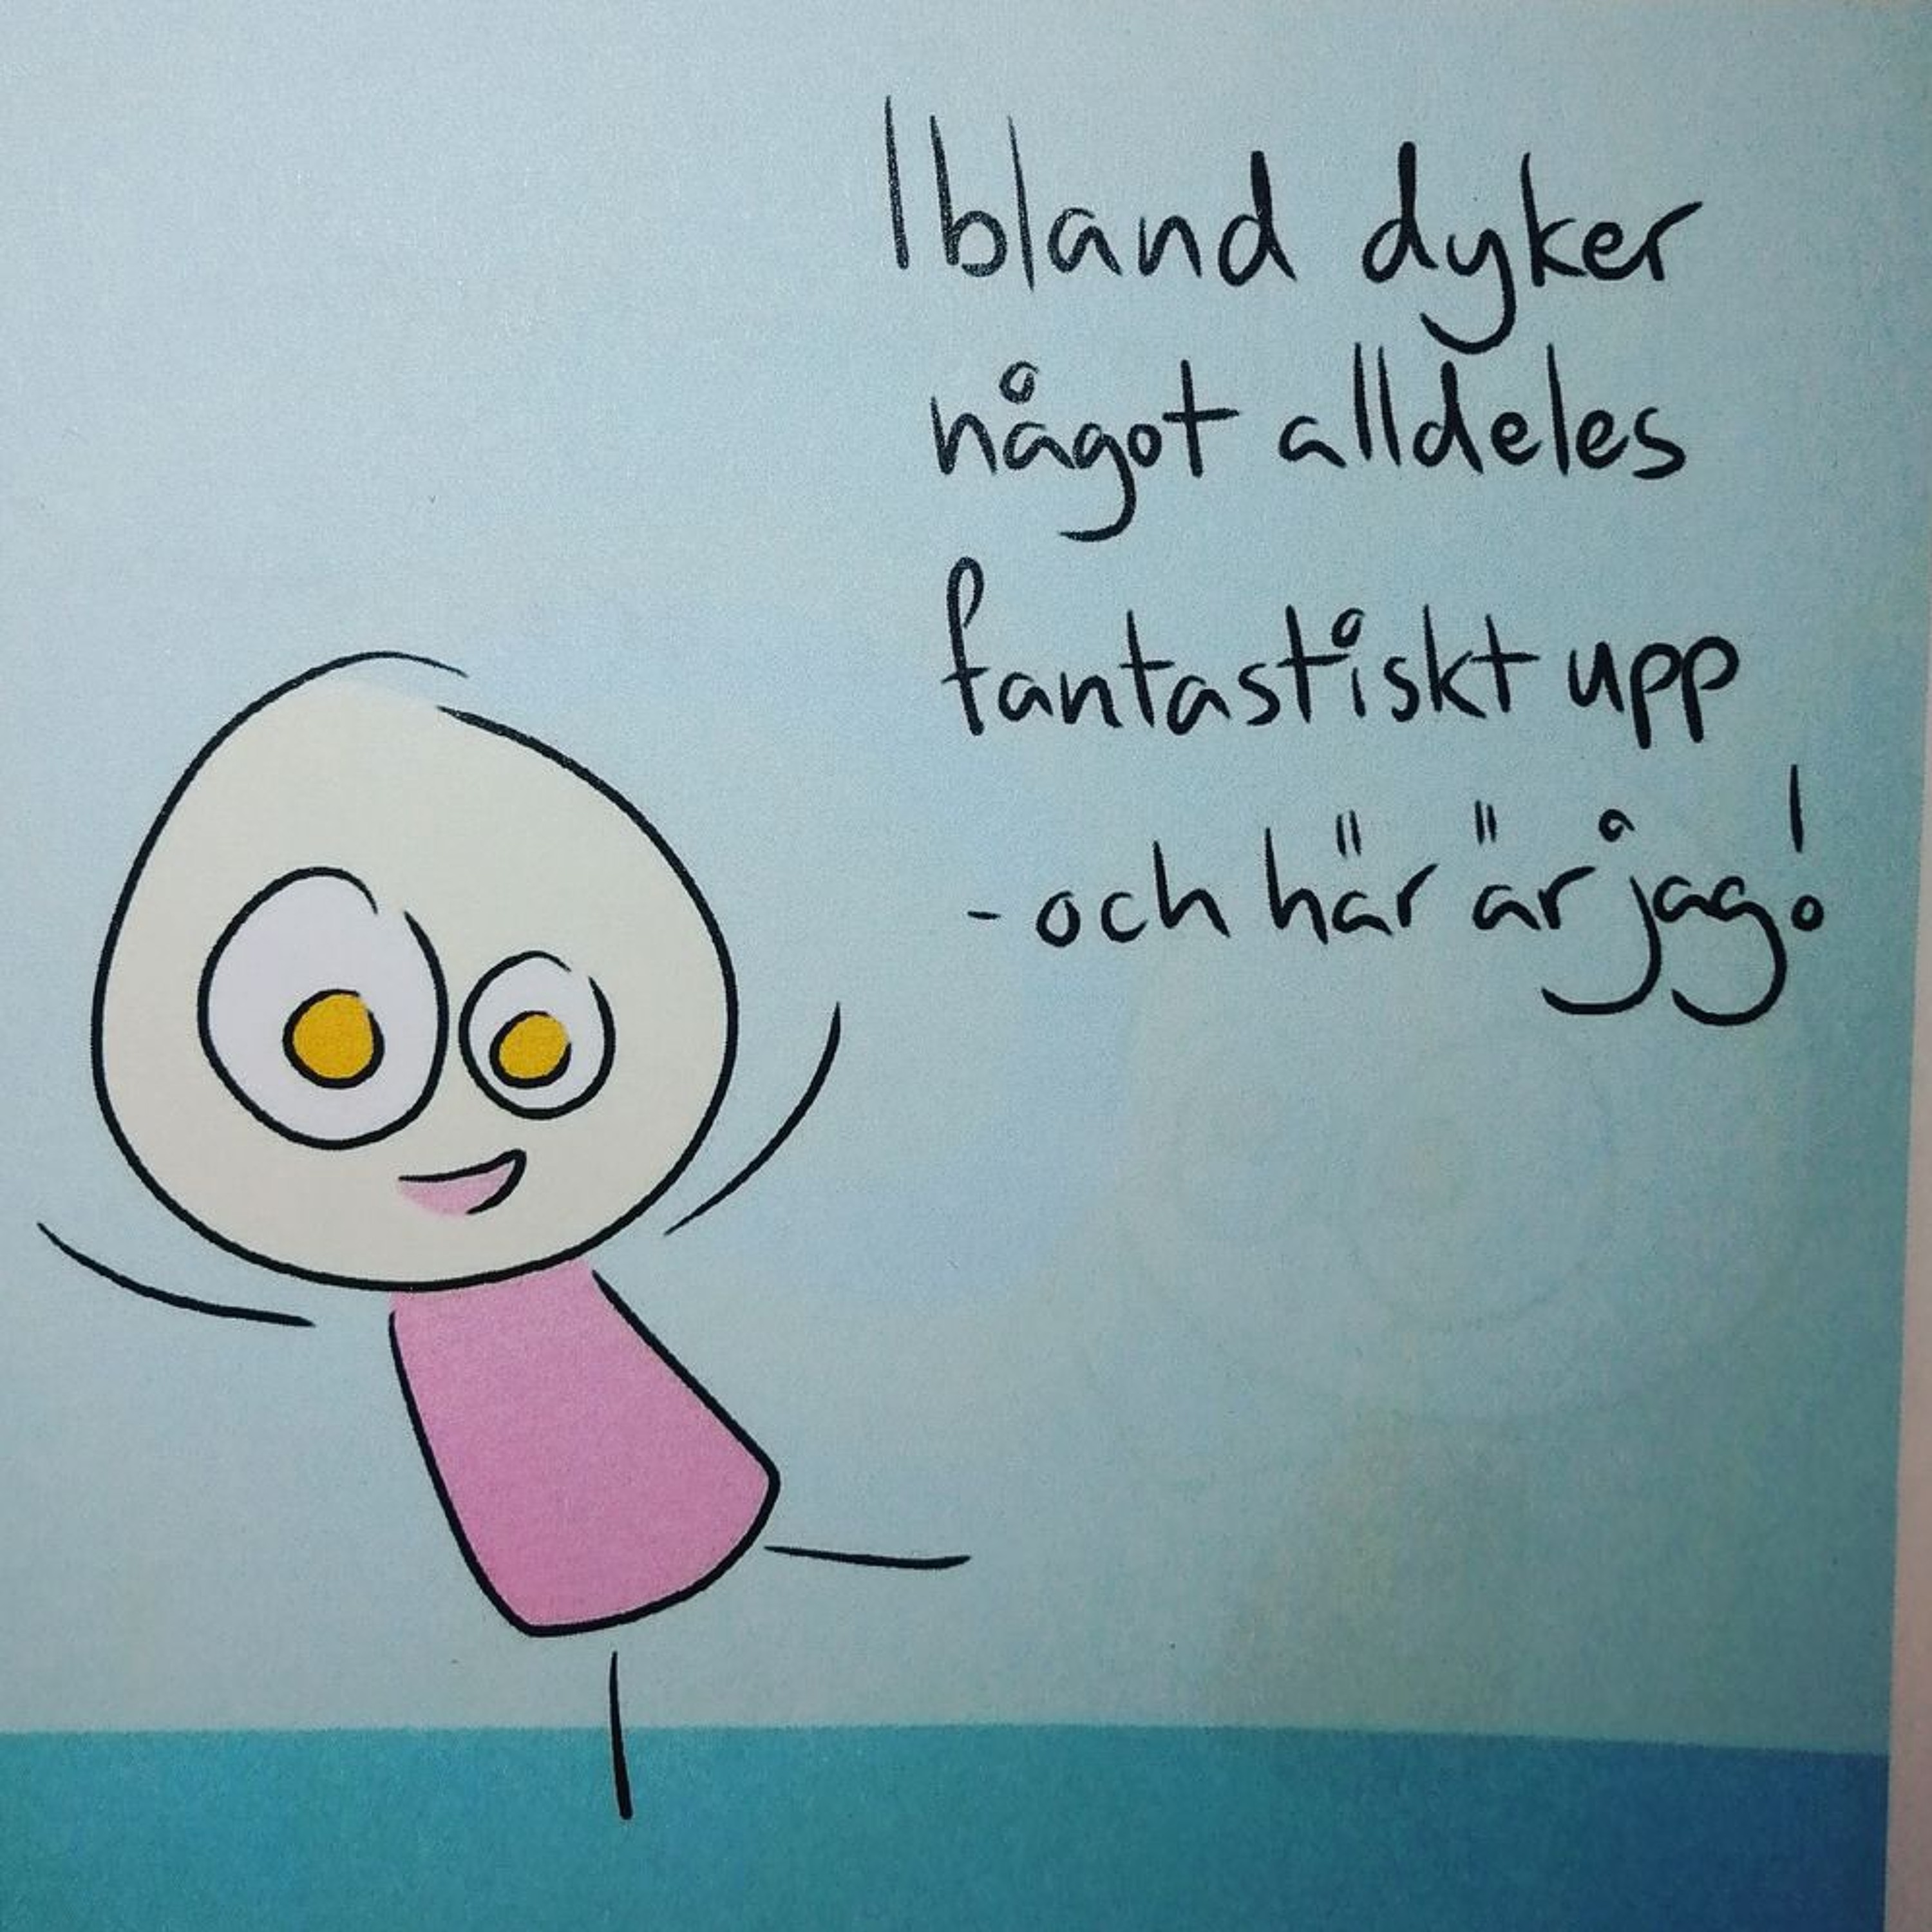 Ibland dyker
något alldeles
fantastiskt upp
- och här är jag!